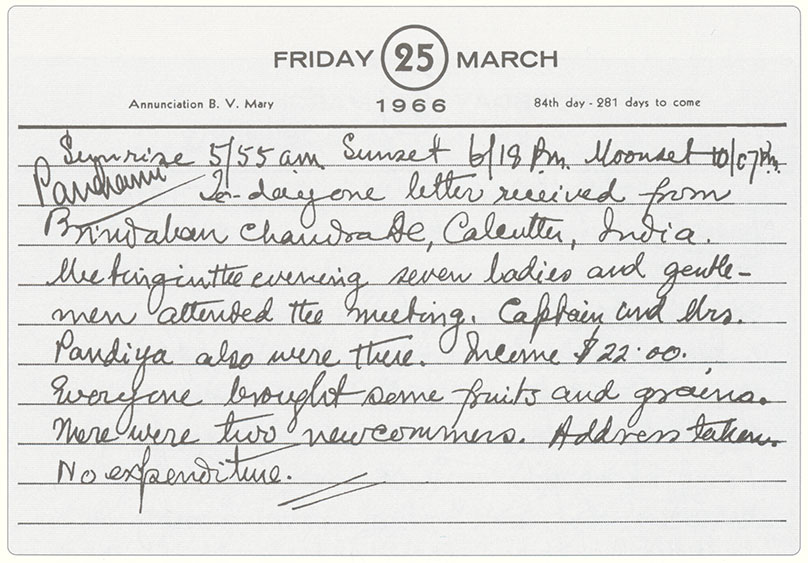 FRIDAY 25 MARCH
Annunciation B. V. Mary 1966 84th day - 281 days to come
Sunrise 5/55 am. Sunset 6/18 P.m. Moonset 10/07 P.m.
Panchami To-day one letter received from
Brindaban Chandra De, Calcutta, India.
Meeting in the evening seven ladies and gentle-
men attended the meeting. Captain and Mrs.
Pandiya also were there. Income $22.00.
Everyone brought some fruits and grains.
There were two newcommers. Address taken.
No expenditure.